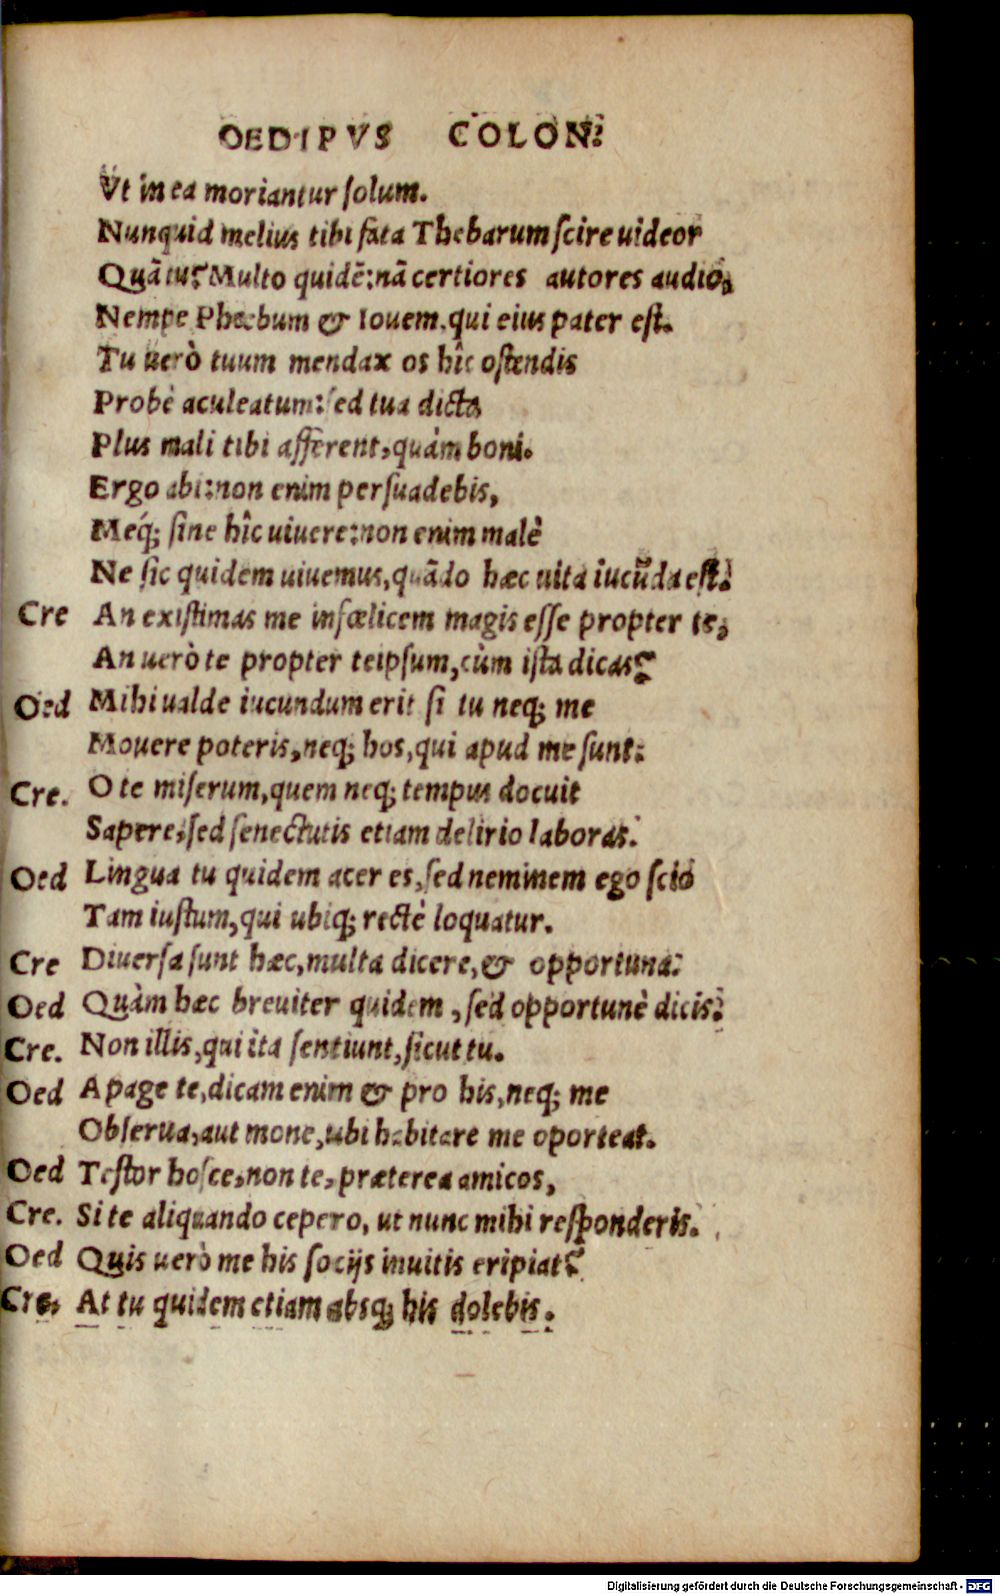 OEDIPVS COLON:
Vt in ea moriantur ſolum.
Nunquid melius tibi fata Thebarum ſcire uideor
Quā tu? Multo quidē: nā certiores autores audio,
Nempe Phœbum & Iouem, qui eius pater eſt.
Tu uerò tuum mendax os hîc oſtendis
Probè aculeatum: ſed tua dicta
Plus mali tibi afferent, quàm boni.
Ergo abi: non enim perſuadebis,
Meq́; ſine hîc uiuere: non enim malè
Ne ſic quidem uiuemus, quādo hæc uita iucūda eſt.
Cre An exiſtimas me infœlicem magis eſſe propter te,
An uerò te propter teipſum, cùm iſta dicas?
Oed Mihi ualde iucundum erit ſi tu neq; me
Mouere poteris, neq; hos, qui apud me ſunt.
Cre. O te miſerum, quem neq; tempus docuit
Sapere, ſed ſenectutis etiam delirio laboras.
Oed Lingua tu quidem acer es, ſed neminem ego ſcio
Tam iuſtum, qui ubiq; rectè loquatur.
Cre Diuerſa ſunt hæc, multa dicere, & opportuna.
Oed Quàm hæc breuiter quidem, ſed opportunè dicis.
Cre. Non illis, qui ita ſentiunt, ſicut tu.
Oed Apage te, dicam enim & pro his, neq; me
Obſerua, aut mone, ubi habitare me oporteat.
Oed Teſtor hoſce, non te, præterea amicos,
Cre. Si te aliquando cepero, ut nunc mihi reſponderis.
Oed Quis uerò me his ſocijs inuitis eripiat?
Cre. At tu quidem etiam absq; his dolebis.
Digitalisierung gefördert durch die Deutsche Forschungsgemeinschaft - DFG